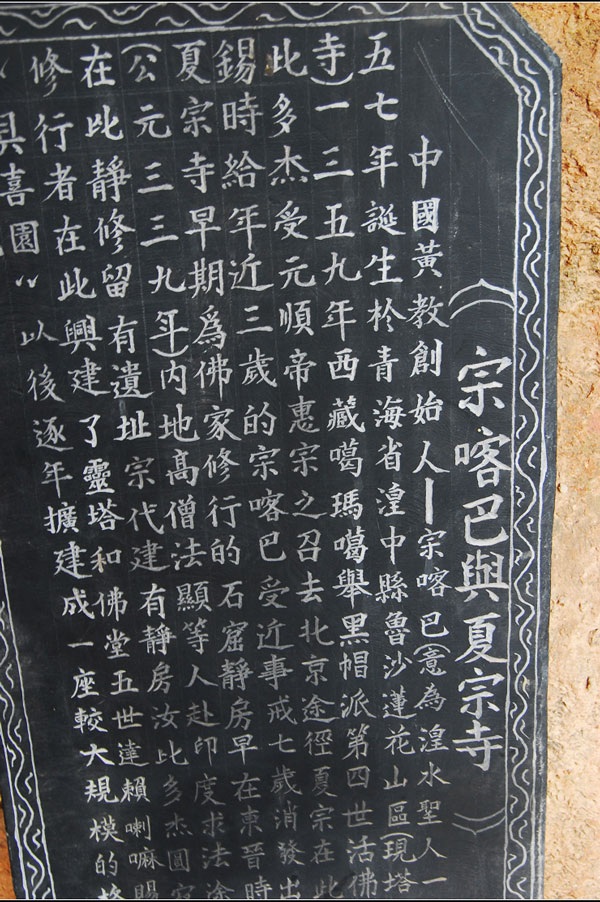 （宗喀巴與夏宗寺）
中國黃教創始人—宗喀巴(意為湟水聖人一
五七年誕生扵青海省湟中縣魯沙蓮花山區(現塔
寺)一三五九年西藏噶瑪噶舉黑帽派第四世活佛
此多杰受元順帝惠宗之召去北京途徑夏宗在此
錫時給年近三歲的宗喀巴受近事戒七歲消發出
夏宗寺早期爲佛家修行的石窟靜房早在東晉時
(公元三三九年)內地高僧法顯等人赴印度求法途
在此靜修留有遺址宗代建有靜房汝比多杰圓
修行者在此興建了靈塔和佛堂五世達賴喇嘛賜
“具喜園”以後逐年擴建成一座較大規模的